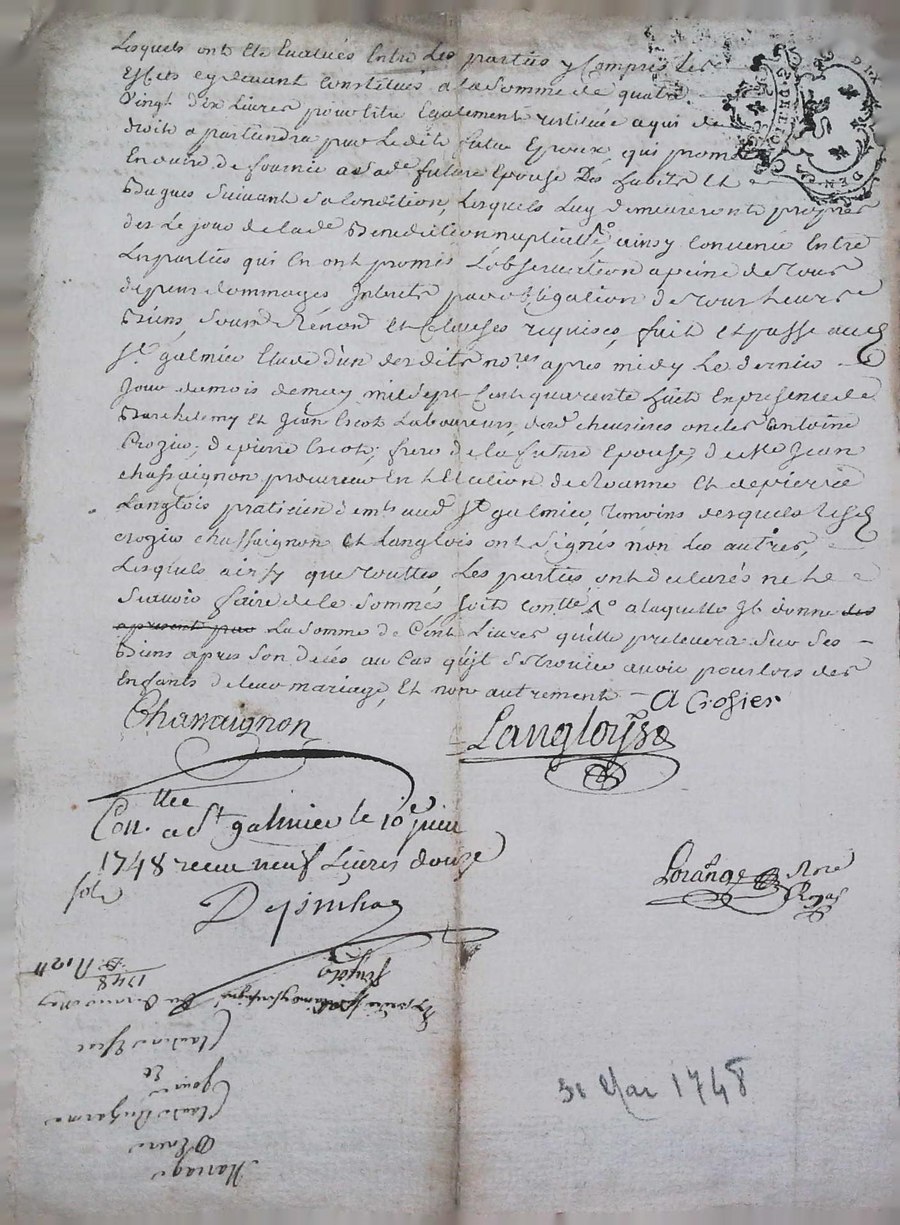 Lesquels ont Eté Evalués Entre Les parties y Compris les
Effets cy devant Constitués a la Somme de quatre
Vingt dix Livres pour être Egalement restituée a qui de
droit apartiendra par Ledit futur Epoux qui promet
En outre de fournir a sade future Epouse Des habits Et
Bagues Suivant Sa Condition, Lesquels Luy demeureront propres
dez Le jour de lade Benediction nuptialle ainsy Convenu Entre
Les parties qui En ont promis L'observation a peine de tous
depens dommages Interets par obligation de tous Leurs
Biens, Soumd Renond et Clauses requises, fait et passé aud
St galmier Etude d'un desdits nores apres midy Le dernier
Jour du mois de may mil sept Cent quarente huit En presence de
Barthelemy et Jean Escot Laboureurs, de Chevrieres oncles Antoine
Crozier, de pierre Escot, frere de la future Epouse, de Me Jean
Chassaignon procureur En L'Election de Roanne Et de pierre
Langlois praticien demt aud St galmier, temoins desquels Lesd
Crozier Chassaignon Et Langlois ont Signés non Les autres,
Lesquels ainsy que touttes Les parties, ont declarés ne Le
Scavoir faire de ce Sommés Soit Contllé a laquelle Il donne des
apresent par La Somme de Cent Livres qu'elle prelevera Sur Ses
Biens apres Son decés au Cas qu'il Se trouve avoir pour lors des
Enfants de leur mariage, Et non autrement A Crosier
Chassaignon Langloys
Conllee a St galmier le 10e juin
1748 receu neuf Livres douze
sols
Lorange Nore
Royal
31 Mai 1748
1748
Mariage
Entre
Claude
Et
Claudine Escot